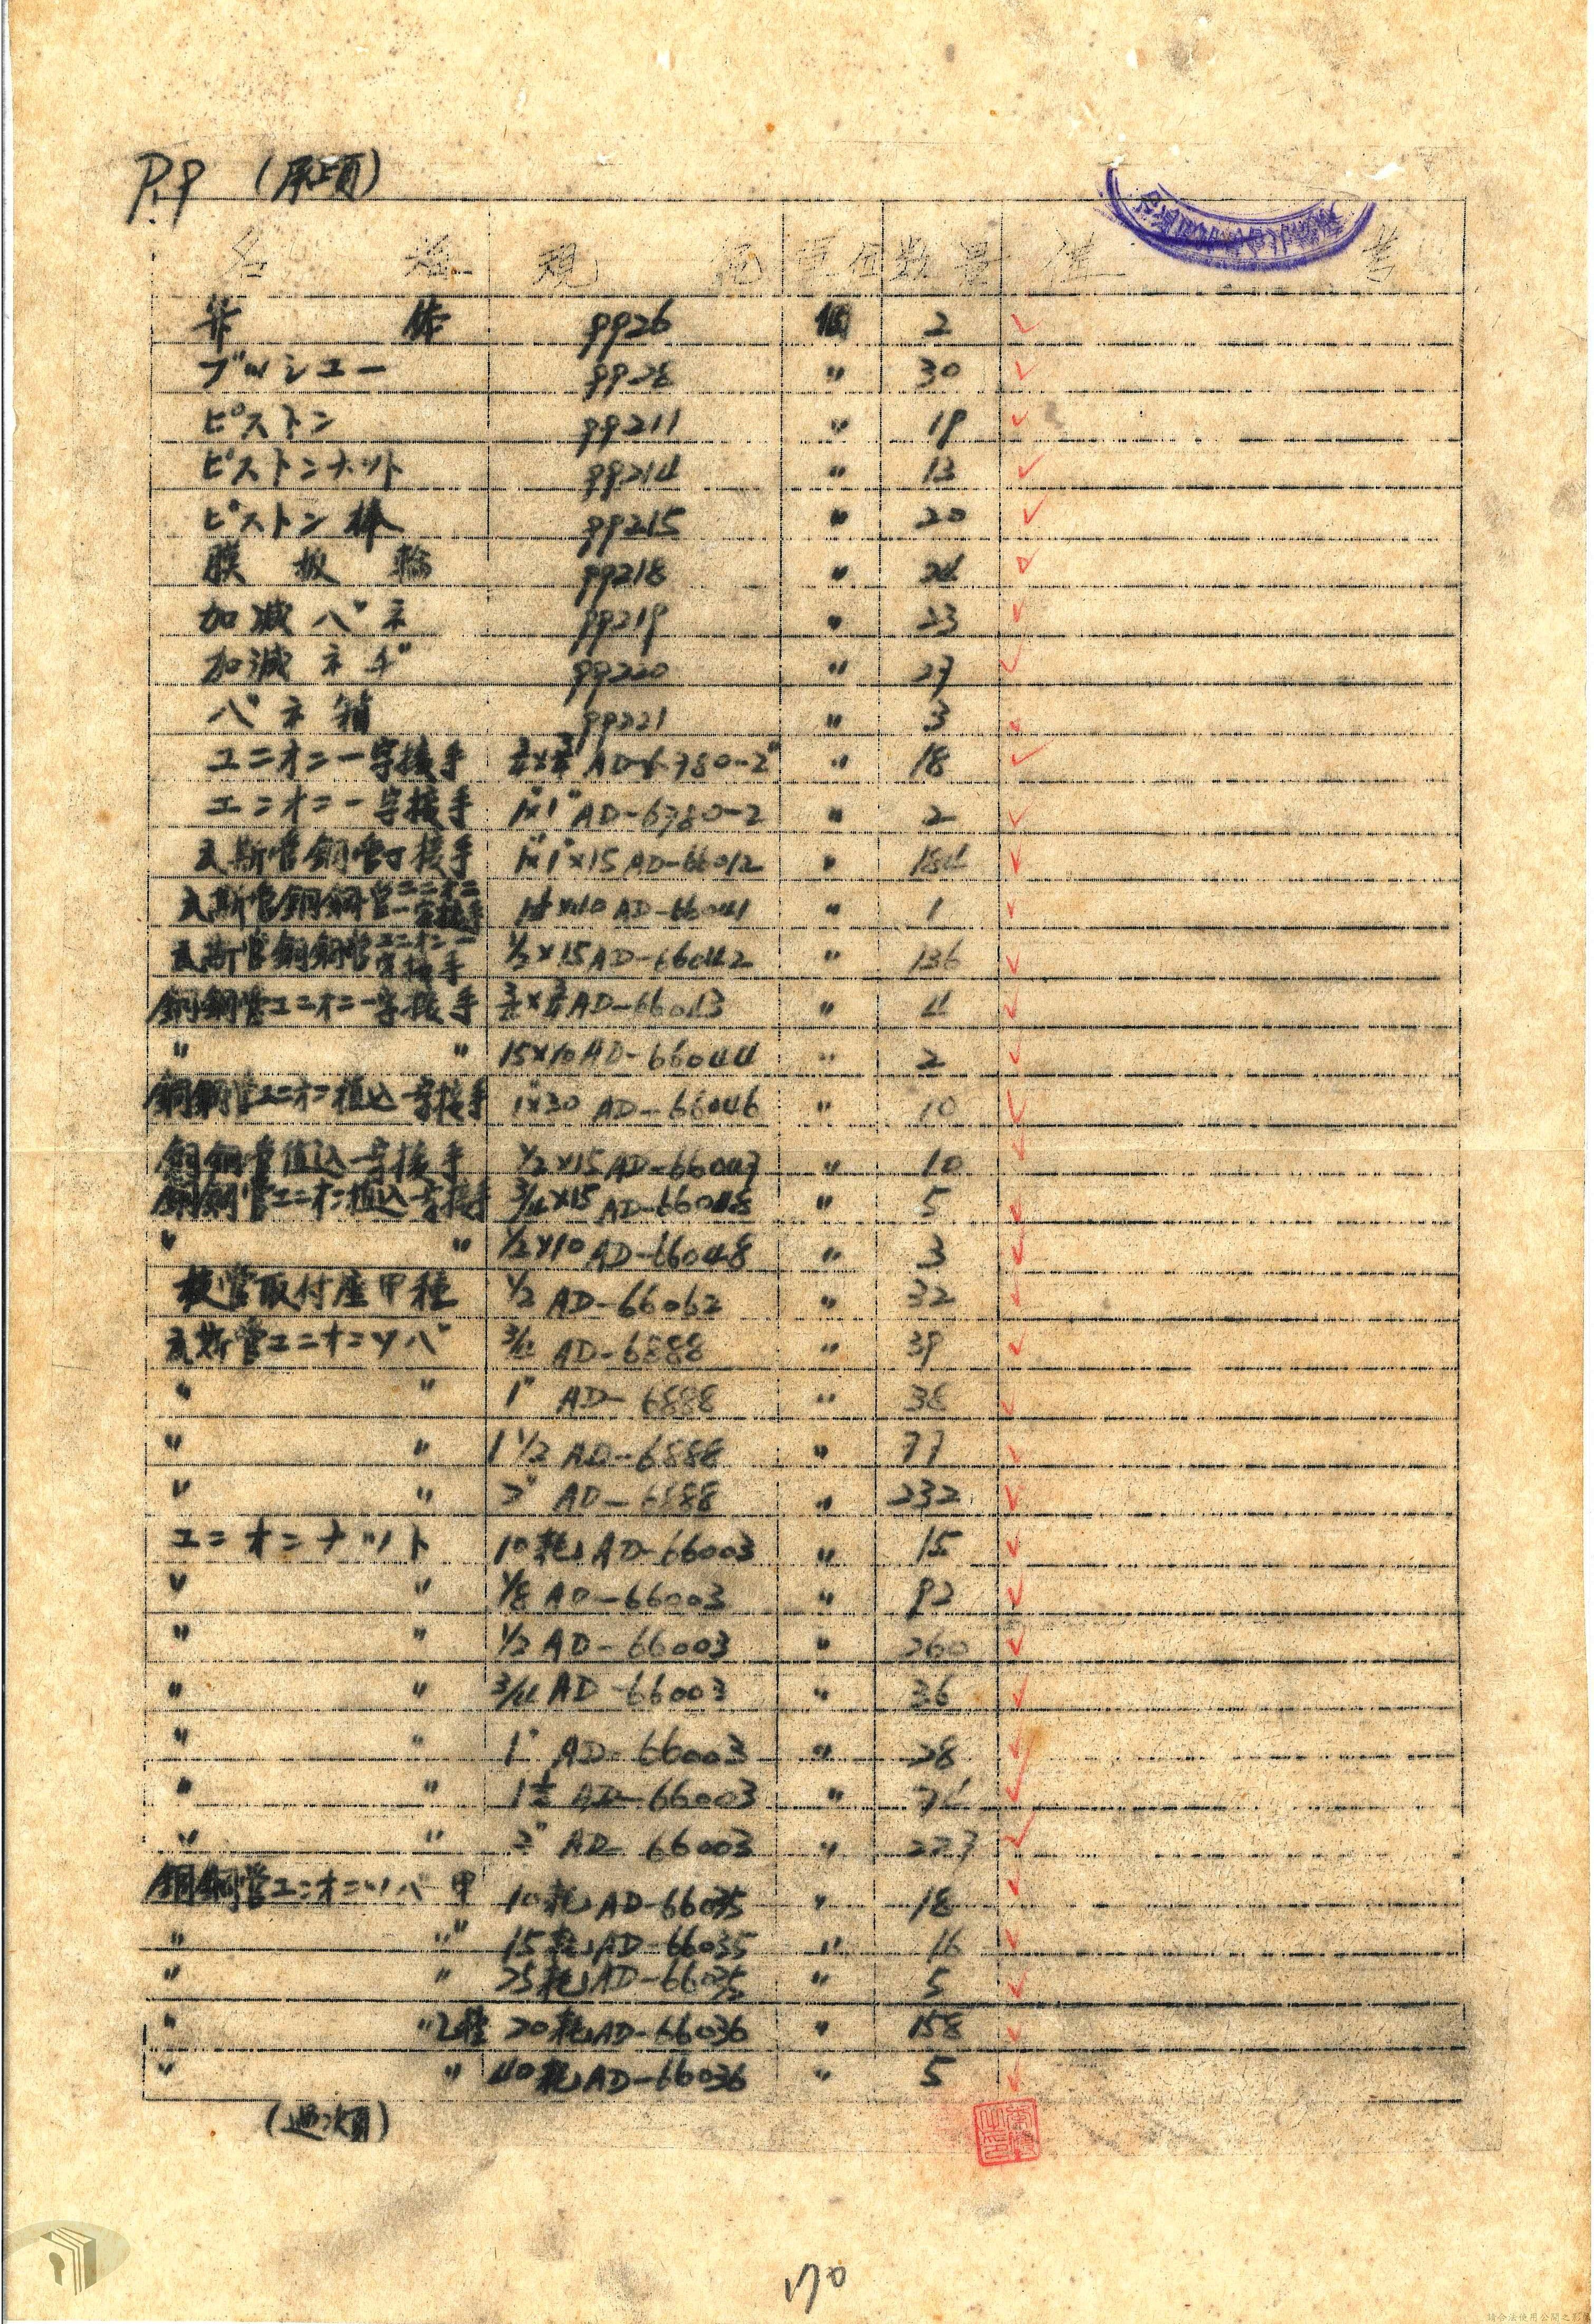 P.9 (承上頁)
名 称 規 範 單位 數量 備 考
体 PP26 個 2
ブッシユー PP28 〃 30
ピストン PP211 〃 19
ピストンナット PP214 〃 13
ピストン棒 PP215 〃 20
膜板輪 PP218 〃 24
加減バネ PP219 〃 23
加減ネヂ PP220 〃 27
バネ箱 PP221 〃 3
ユニオン一字接手 AD-6780-2 〃 18
ユニオン一字接手 1"×1" AD-6780-2 〃 2
瓦斯管銅管丁接手 1"×1"×15 AD-66012 〃 184
瓦斯管銅鋼管ユニオン一字接手 AD-66041 〃 1
瓦斯管銅鋼管ユニオン一字接手 1/2×15 AD-66042 〃 136
銅鋼管ユニオン一字接手 3/4×3/4 AD-66043 〃 4
〃 〃 15×10 AD-66044 〃 2
銅鋼管ユニオン植込一字接手 1"×30 AD-66046 〃 10
銅鋼管植込一字接手 1/2×15 AD-66047 〃 10
銅鋼管ユニオン植込一字接手 3/4×15 AD-66048 〃 5
〃 〃 1/2×10 AD-66048 〃 3
管取付座甲種 1/2 AD-66062 〃 32
瓦斯管ユニオンツバ 3/4 AD-6888 〃 39
〃 〃 1" AD-6888 〃 38
〃 〃 1 1/2 AD-6888 〃 77
〃 〃 2" AD-6888 〃 232
ユニオンナット 10粍 AD-66003 〃 15
〃 〃 1/8 AD-66003 〃 92
〃 〃 1/2 AD-66003 〃 260
〃 〃 3/4 AD-66003 〃 36
〃 〃 1" AD-66003 〃 28
〃 〃 1 1/2 AD-66003 〃
〃 〃 2" AD-66003 〃 227
銅鋼管ユニオンツバ甲 10粍 AD-66035 〃 18
〃 〃 15粍 AD-66035 〃 16
〃 〃 25粍 AD-66035 〃 5
〃 〃乙種 20粍 AD-66036 〃 158
〃 〃 40粍 AD-66036 〃 5
(過次頁)
170
請合法使用公開之影像